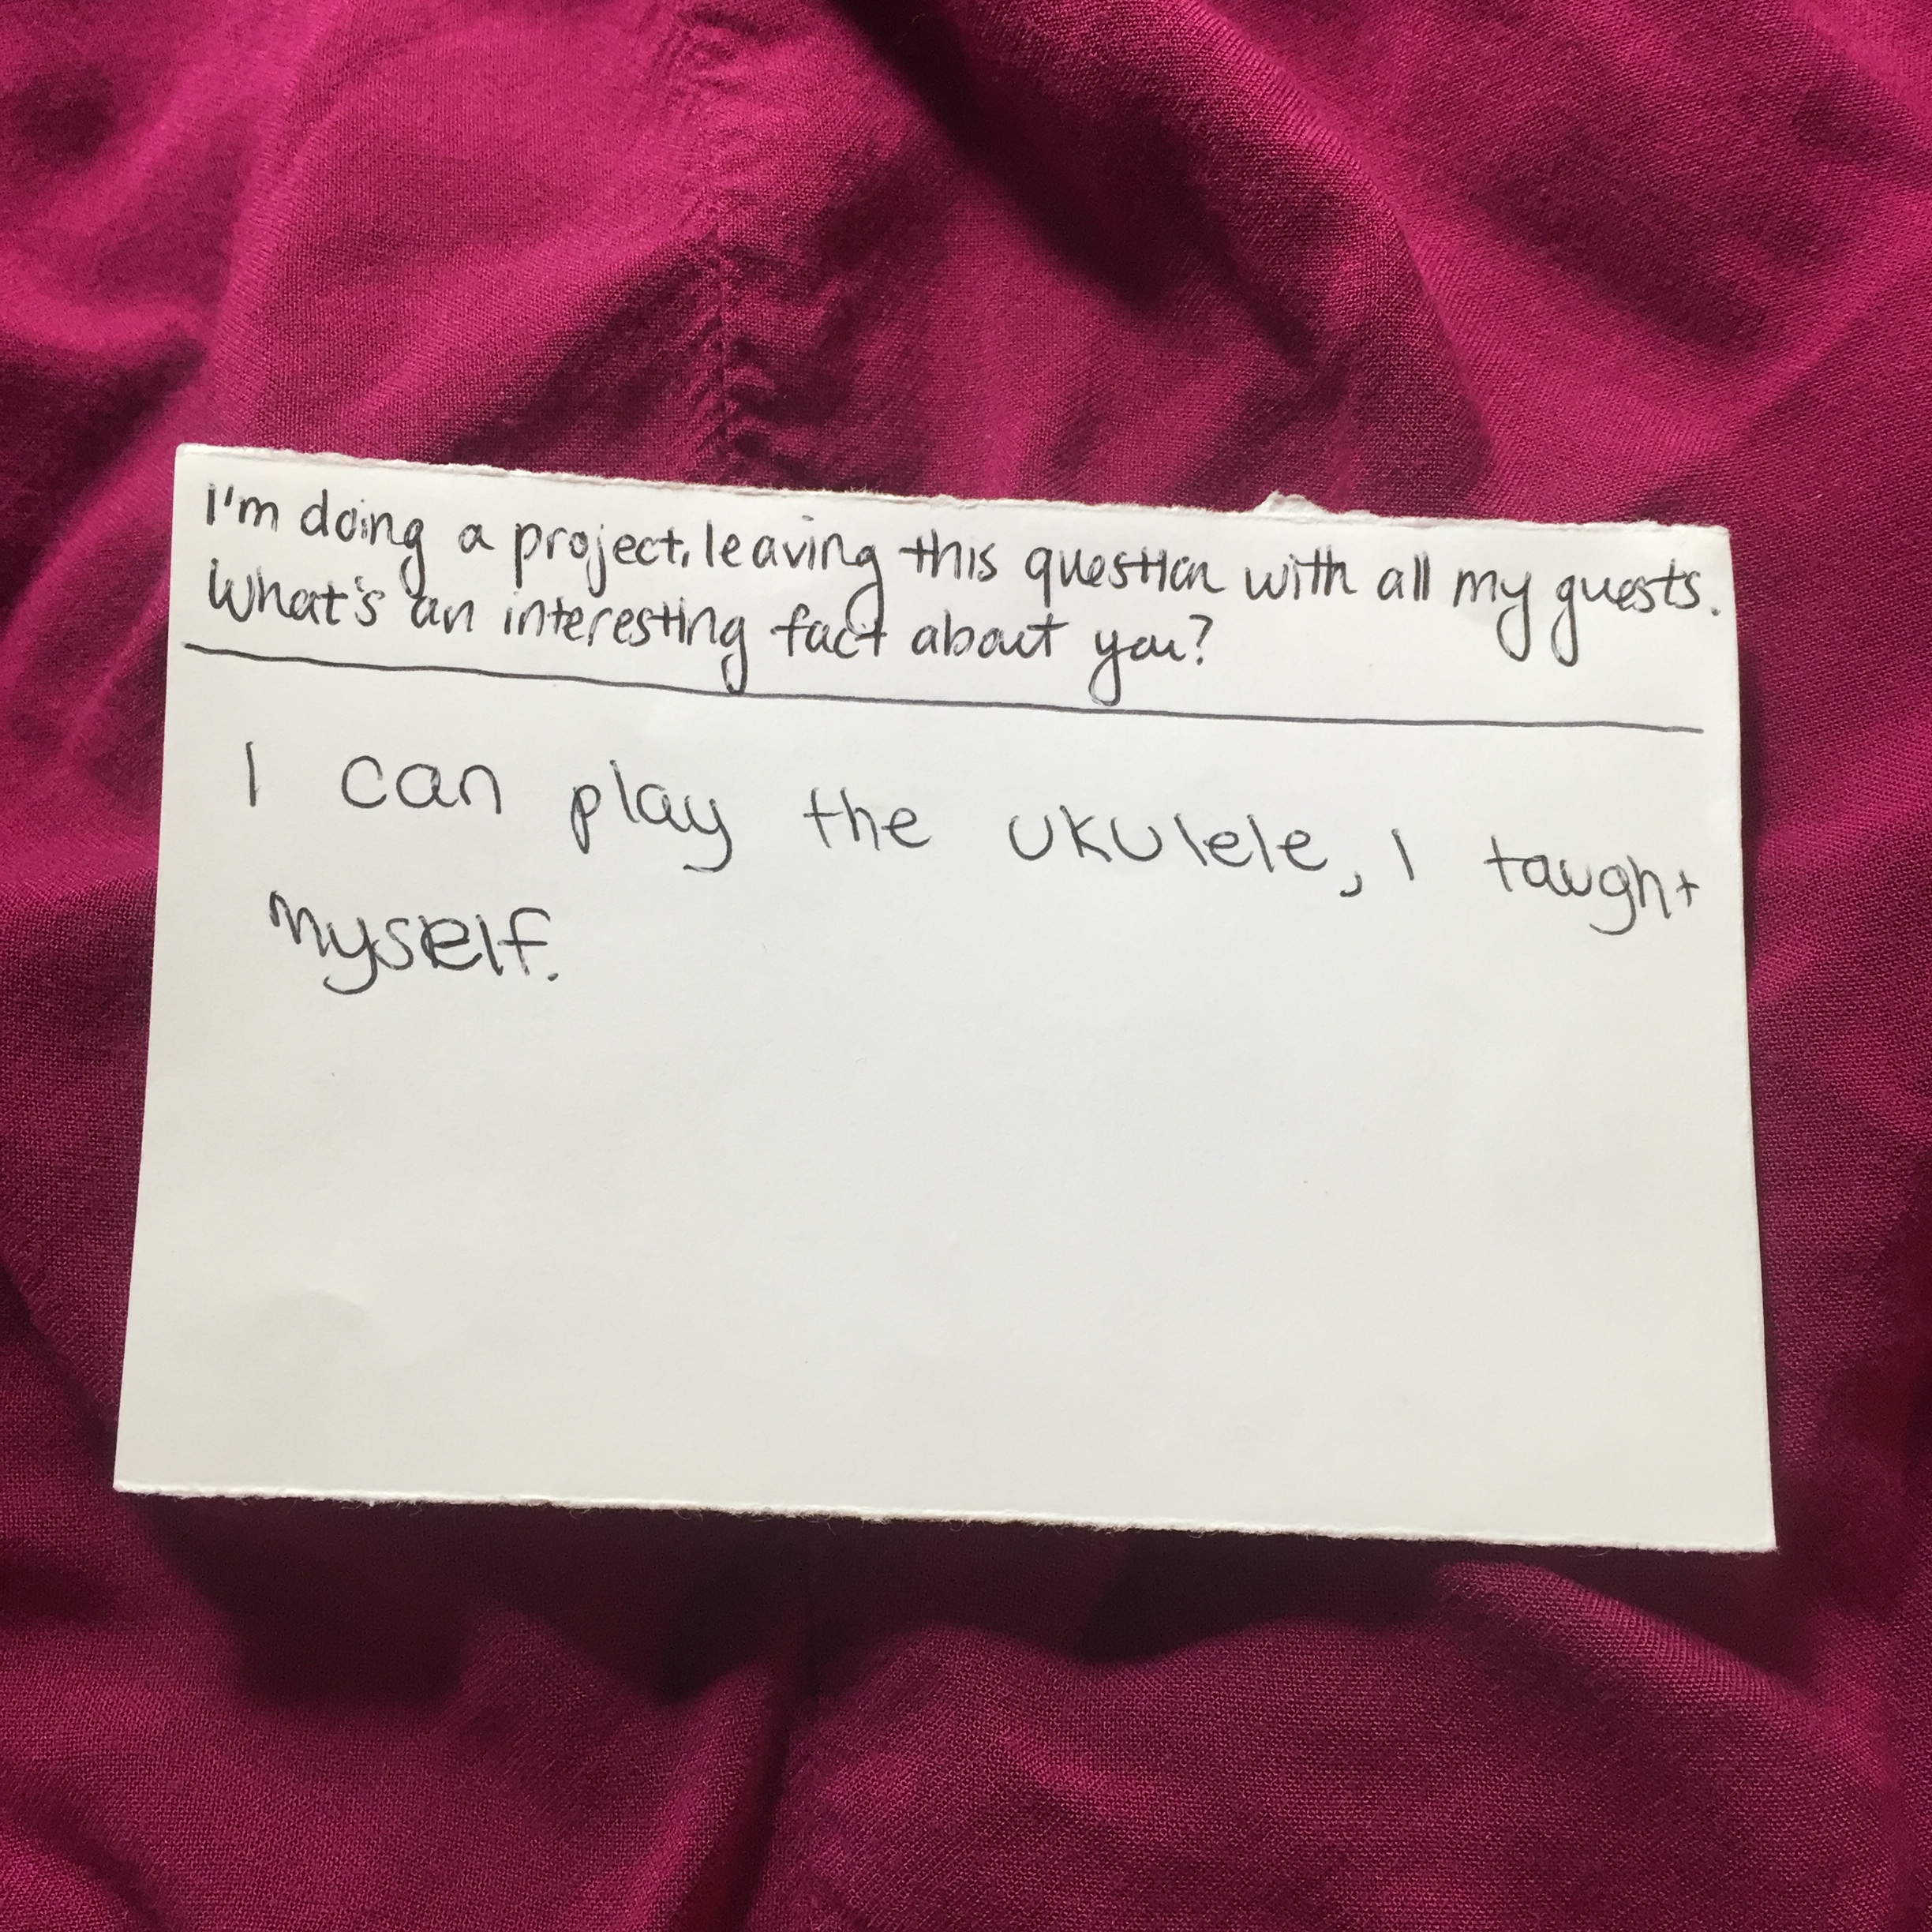 I'm doing a project, leaving this question with all my guests.
What's an interesting fact about you?
I can play the ukulele, I taught
myself.